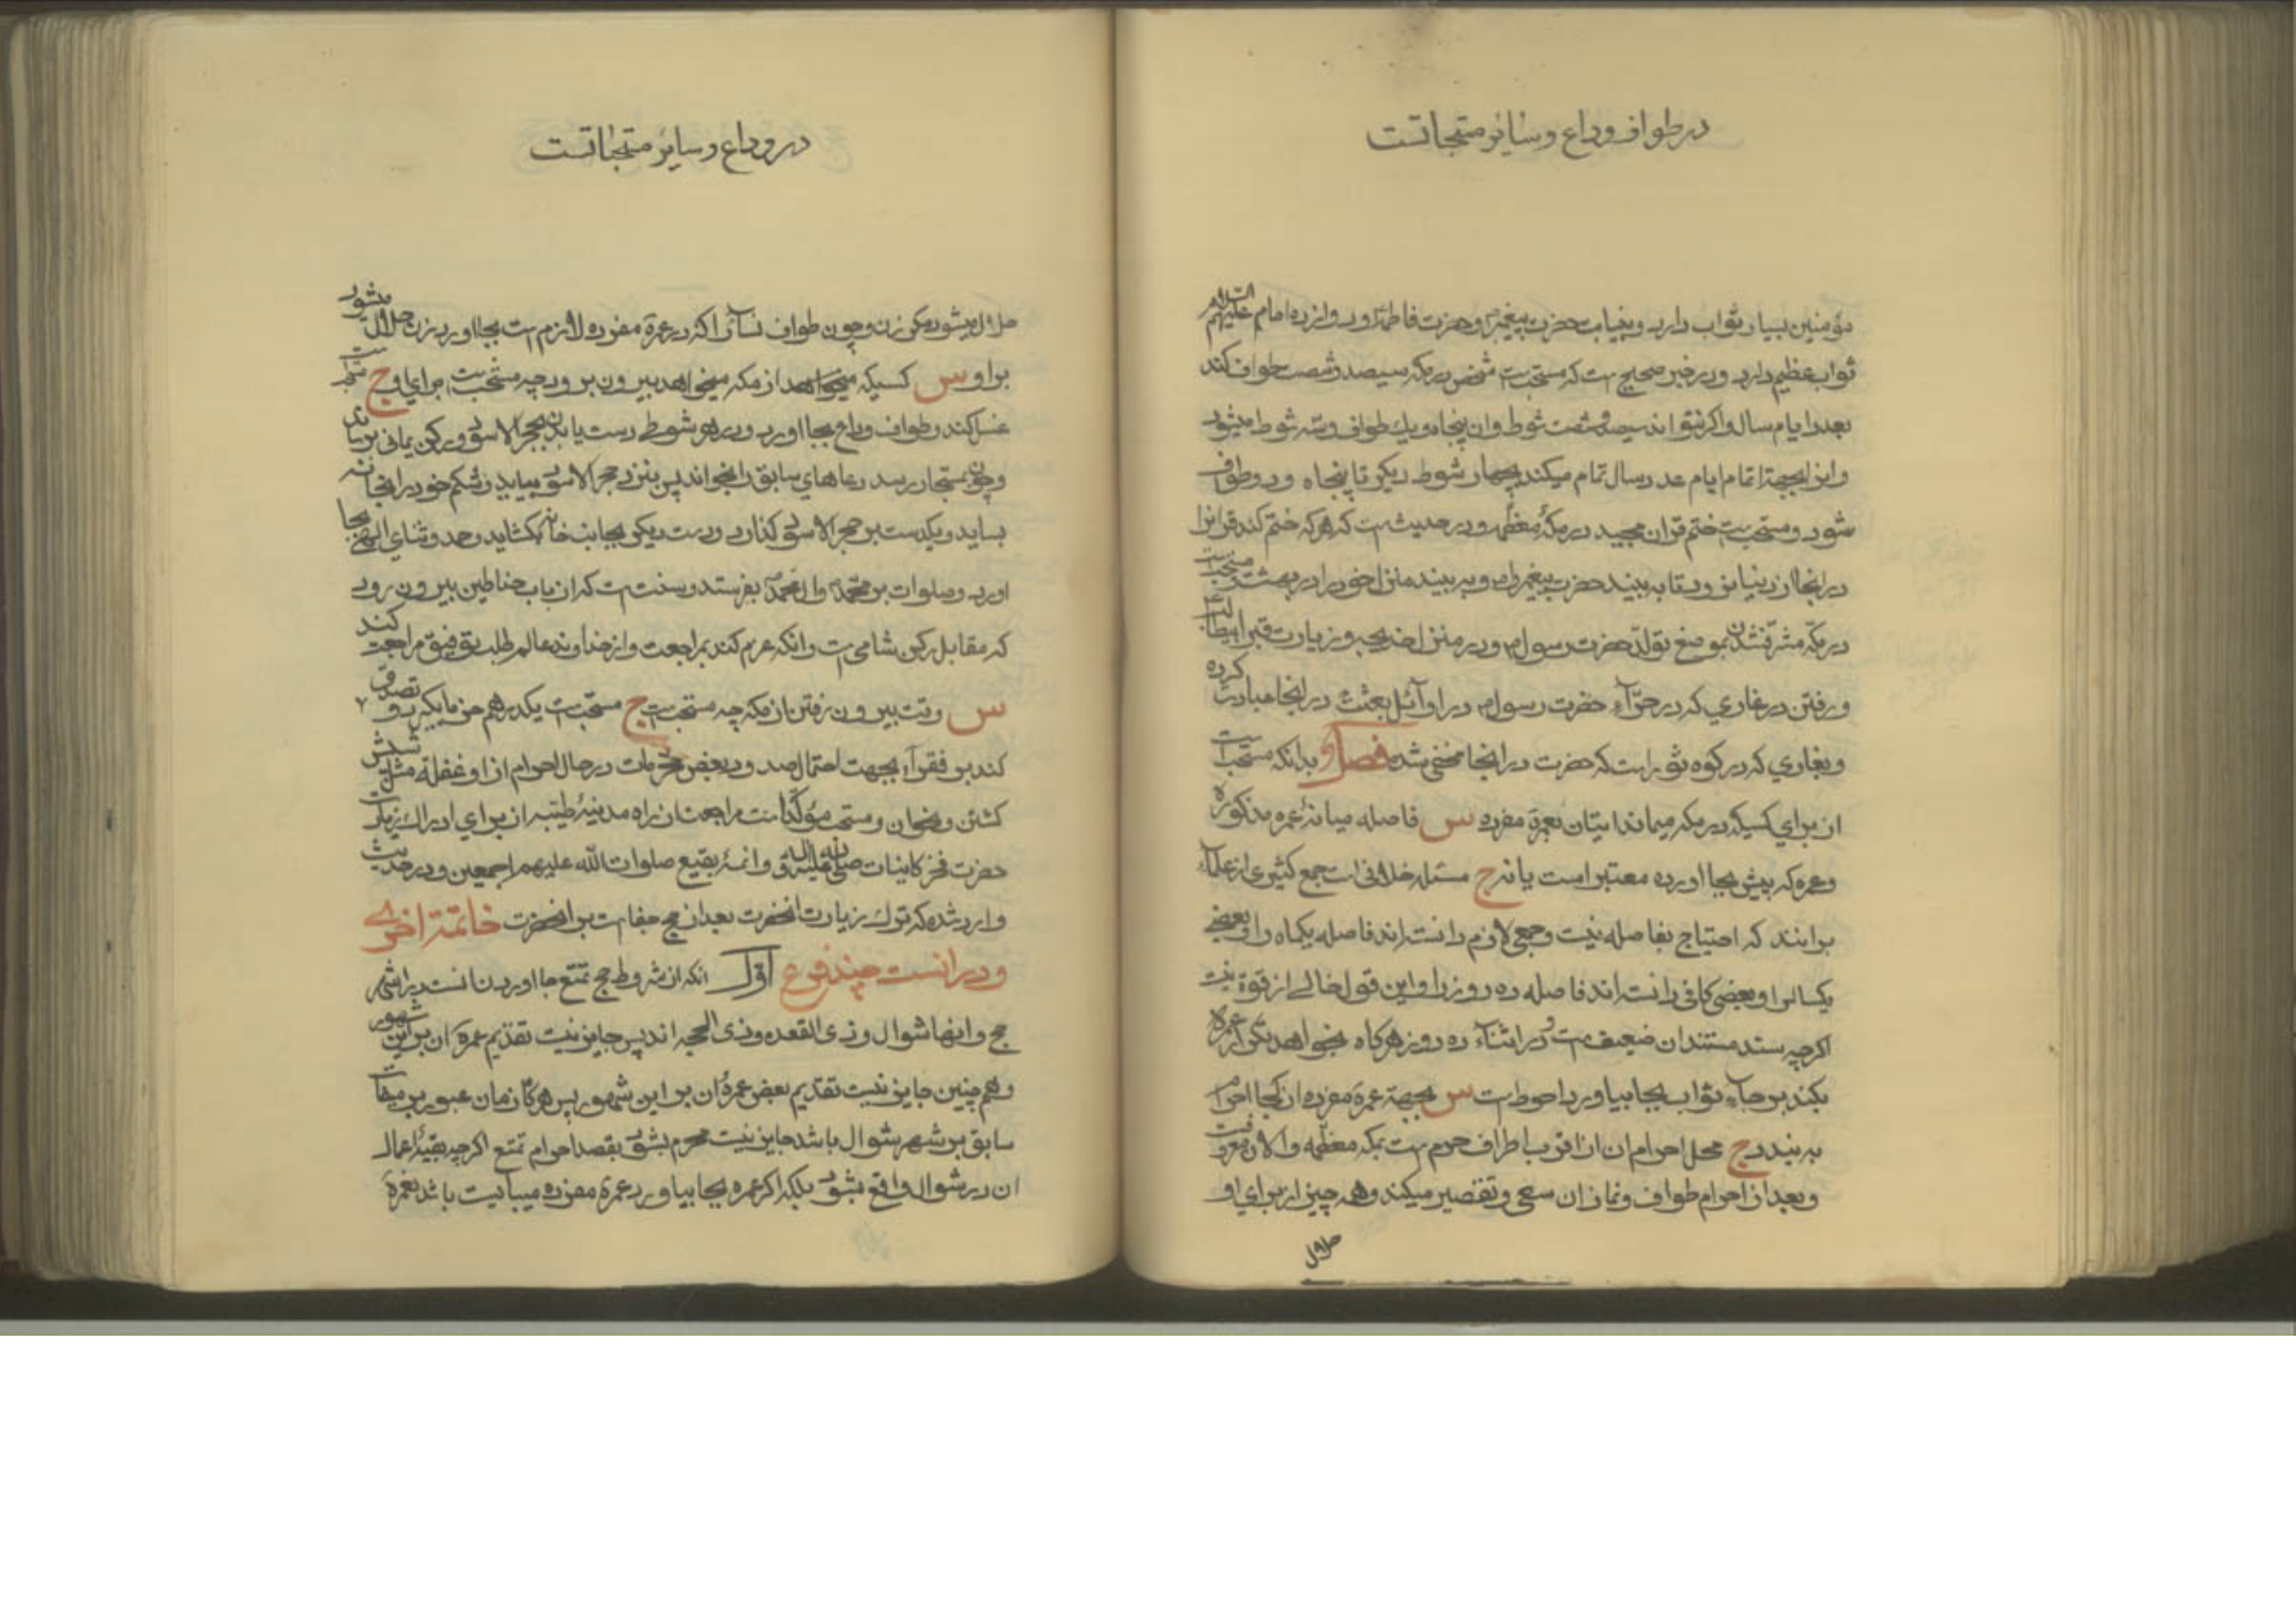 در طواف وداع و سایر مستحباتست
مؤمنین بسیار ثواب دارد و بنیابت حضرت پیغمبر و حضرت فاطمه و دوازده امام علیهم السلام
ثواب عظیم دارد و در خبر صحیح است که مستحبست شخص در مکه سیصد و شصت طواف کند
بعدد ایام سال و اکر نتواند سیصد و شصت شوط و ان پنجاه و یك طواف و سه شوط میشود
و ابن تمام ایام عدد سال تمام میکند چهار شوط دیکر تا پنجاه و دو طواف
شود و مستحبست ختم قران مجید در مکهٔ معظمه و در حدیث است که هرکه ختم کند قرانرا
در انجا از دنیا نرود تا به بیند حضرت پیغمبر را و به بیند منزل خود را در بهشت و مستحبست
در مکه مشرف شدن بموضع تولد حضرت رسول و در منزل خدیجه و زیارت قبر ابیطالب
و رفتن در غاري که در حرّآء حضرت رسول در اوآئل بعثت در انجا عبادت کرده
و بغاري که در کوه ثور است که حضرت در انجا مخفی شده فصل و بدانکه مستحب است
از براي کسیکه در مکه میماند اتیان بعمرة مفرده س فاصله میانهٔ عمره مذکوره
و عمره که پیش بجا اورده معتبر است یا نه ج مسئله خلافی است جمع کثیری از علمآء
برانند که احتیاج بفاصله نیست و جمعی لازم دانسته اند فاصله یکماه را و بعضی
یکسال را و بعضی کافی دانسته اند فاصله ده روز را و این قول خالی از قوة نیست
اکرچه سند مستند ان ضعیف است و در اثنآء ده روز هرکاه بخواهد تکرار عمره
بکند برجآء ثواب بجا بیاورد احوط است س بجهة عمرة مفرده از کجا احرام
به بندد ج محل احرام ان از اقرب اطراف حرم است بمکه معظمه و الان معروفست
و بعد از احرام طواف و نماز ان سعی و تقصیر میکند و همه چیز از براي او
حلال
در وداع و سایر مستحباتست
حلال میشود مکر زن و چون طواف نسآئی را که در عمرة مفرده لازم است بجا اورد زن حلال میشود
بر او س کسیکه از مکه میخواهد بیرون برود چه مستحبست براي او ج مستحبست
غسل کند و طواف وداع بجا اورد و در هر شوطی دست یا بدن بحجر الاسود و رکن یمانی برساند
و چون بمستجار رسد دعاهاي سابق را بخواند پس بنزد حجر الاسود بیاید و شکم خود را بخانه
بساید و یکدست بر حجر الاسود کذارد و دست دیکر بجانب خانه کشاید و حمد و ثناي الهی بجا
اورد و صلوات بر محمد و ال محمد بفرستد و سنت است که از باب حناطین بیرون رود
که مقابل رکن شامی است و انکه عزم کند بمراجعت و از خداوند عالم طلب توفیق مراجعت کند
س وقت بیرون رفتن از مکه چه مستحبست ج مستحبست یکدرهم خرما بکیرد و تصدق
کند بر فقرآء بجهت احتمال صدور بعض محرمات در حال احرام از او غفلة مثل شپش
کشتن و امثال ان و مستحب مؤکد است مراجعت از راه مدینهٔ طیبه از براي ادراك زیارت
حضرت فخر کاینات صلی الله علیه و اله و ائمهٔ بقیع صلوات الله علیهم اجمعین و در حدیث
وارد شده که ترك زیارت انحضرت بعد از حج جفا است بر انحضرت خاتمة اخری
و در انست چند فرع اول انکه از شروط حج تمتع بجا اوردن انست در اشهر
حج و انها شوال و ذی القعده و ذی الحجه اند پس جایز نیست تقدیم عمرة ان بر این شهور
و همچنین جایز نیست تقدیم بعض عمرهٔ ان بر این شهور پس هرکاه زمان عبور بر میقات
سابق بر شهر شوال باشد جایز نیست محرم بشود بقصد احرام تمتع اکرچه بقیهٔ اعمال
ان در شوال واقع بشود بلکه اکر عمره بجا بیاورد عمرة مفرده میبایست باشد بعمرة